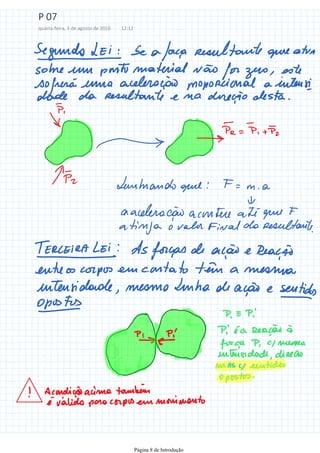 P 07
quarta-feira, 3 de agosto de 2016    12:12
Segunda LEi : Se a força resultante que atua
sobre um ponto material Não for zero, este
sofrerá uma aceleração proporcional a intensi
dade da resultante e na direção desta.
P₁
PR = P₁ + P₂
P₂
Lembrando que : F = m . a
↓
a aceleração acontece até que F
atinja o valor Final da Resultante.
TERCEIRA LEi : As forças de ação e Reação
entre os corpos em contato têm a mesma
intensidade, mesmo Linha de ação e sentidos
opostos
P₁ ≡ P₁'
P₁ P₁'
P₁' é a Reação à
força P₁ c/ mesma
intensidade, direção
mas c/ sentidos
opostos.
! A condição acima também
é válida para corpos em movimento
Página 8 de Introdução